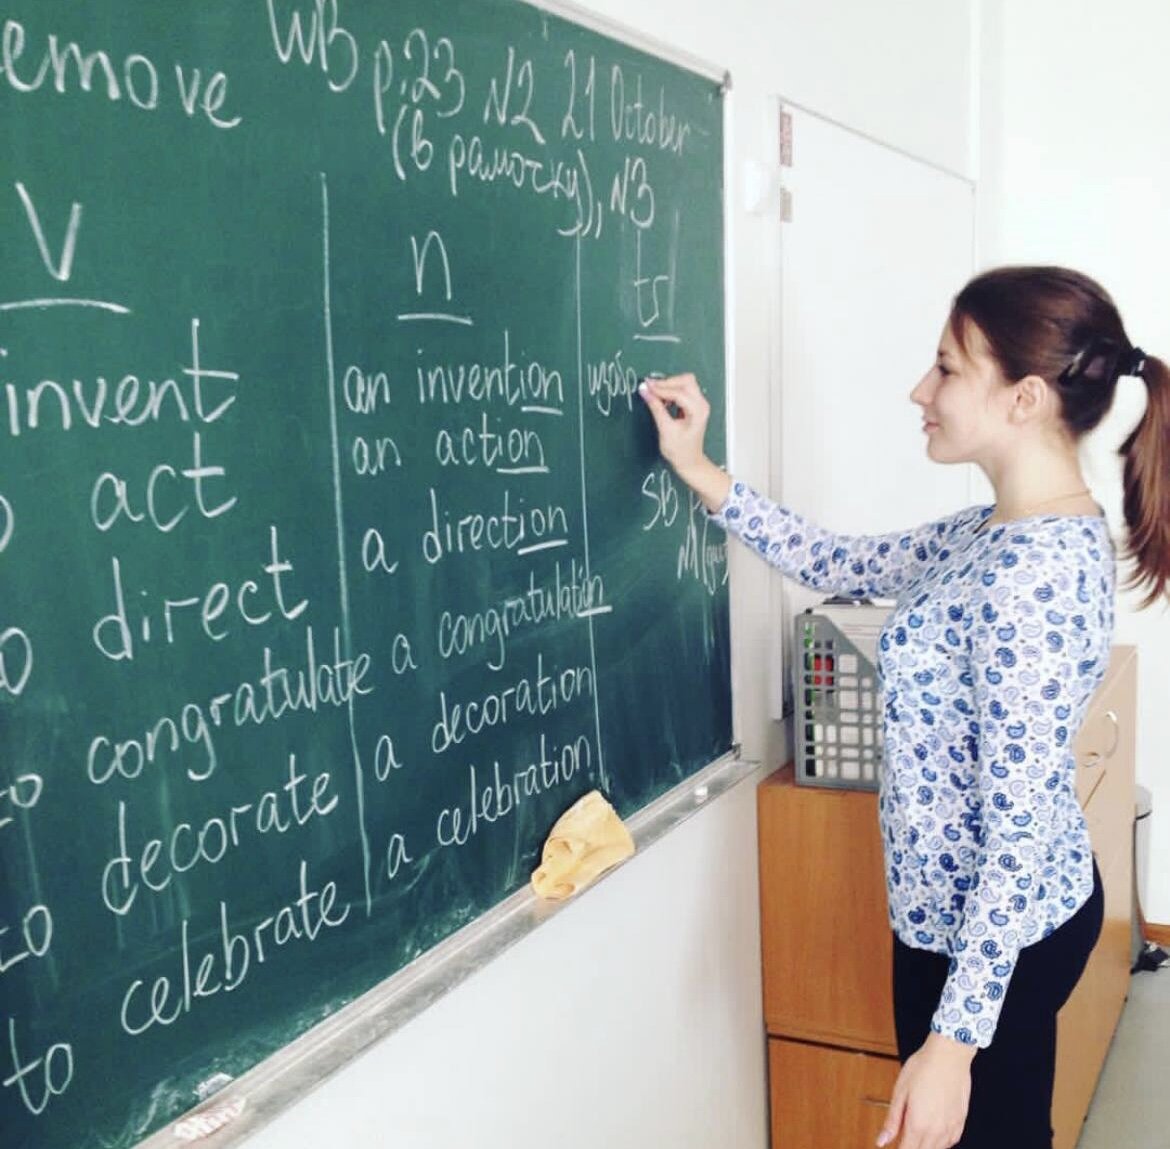 emove WB p.23 N2 21 October
(в рамочку), N3
V n tr
invent an invention изобр
act an action
direct a direction SB
to congratulate a congratulation N1
to decorate a decoration
to celebrate a celebration